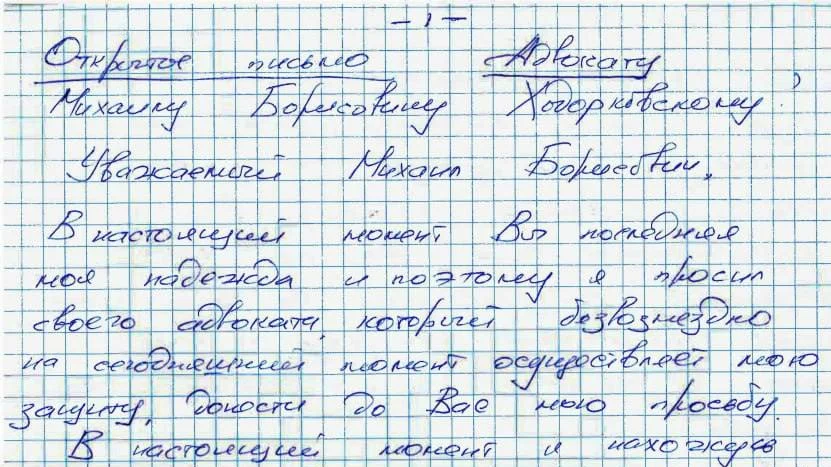 – 1 –
Открытое письмо Адвокату
Михаилу Борисовичу Ходорковскому!
Уважаемый Михаил Борисович,
В настоящий момент Вы последняя
моя надежда и поэтому я просил
своего адвоката, который безвозмездно
на сегодняшний момент осуществляет мою
защиту, донести до Вас мою просьбу.
В настоящий момент я нахожусь